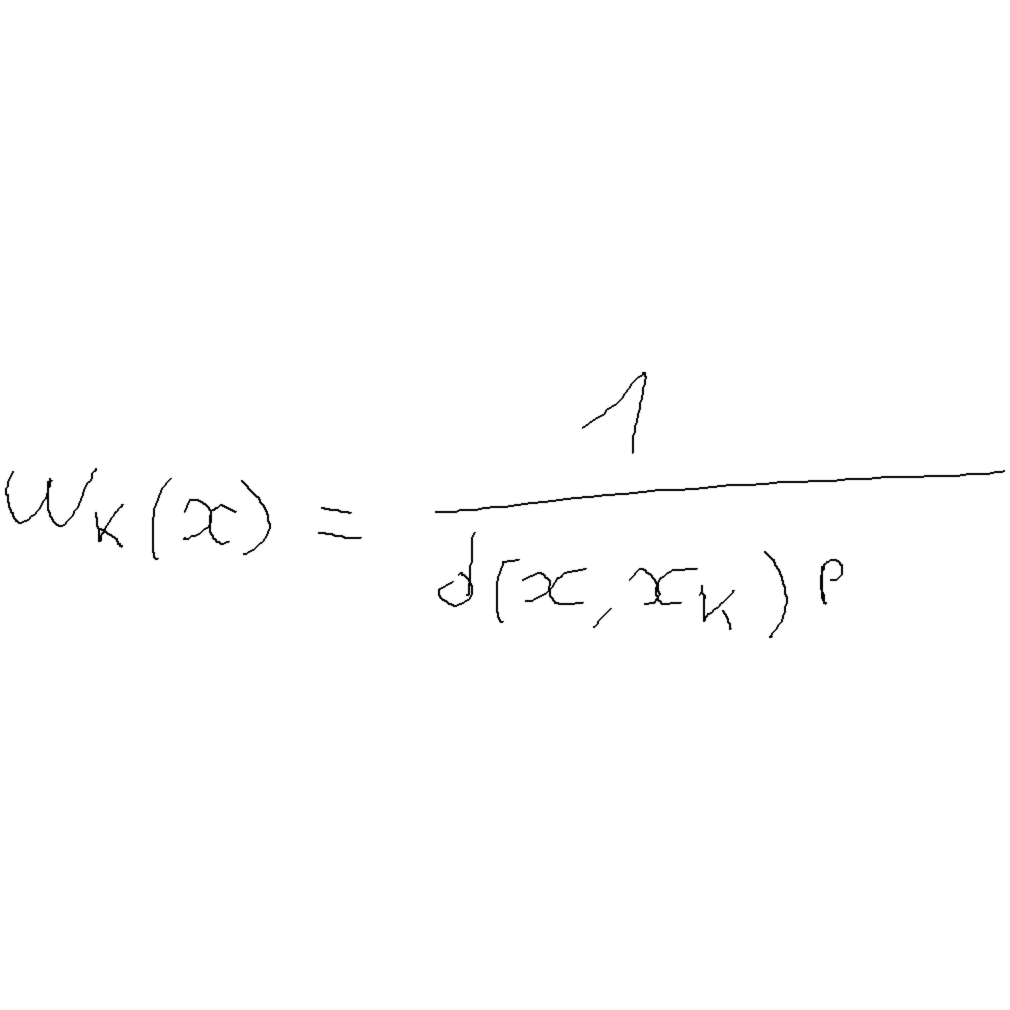 w_k(x) = \frac{1}{d(x, x_k)^p}